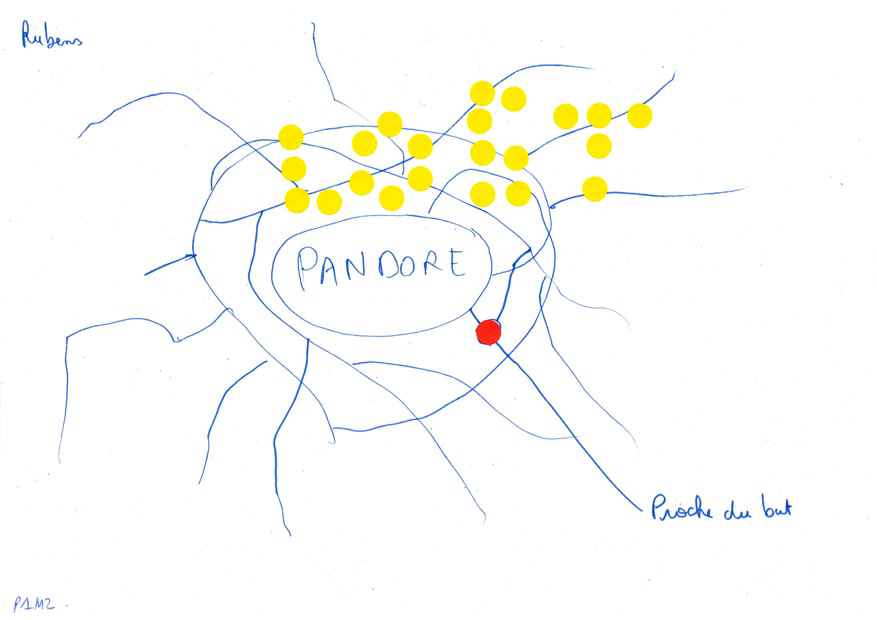 Rubens
PANDORE
Proche du but
P1M2